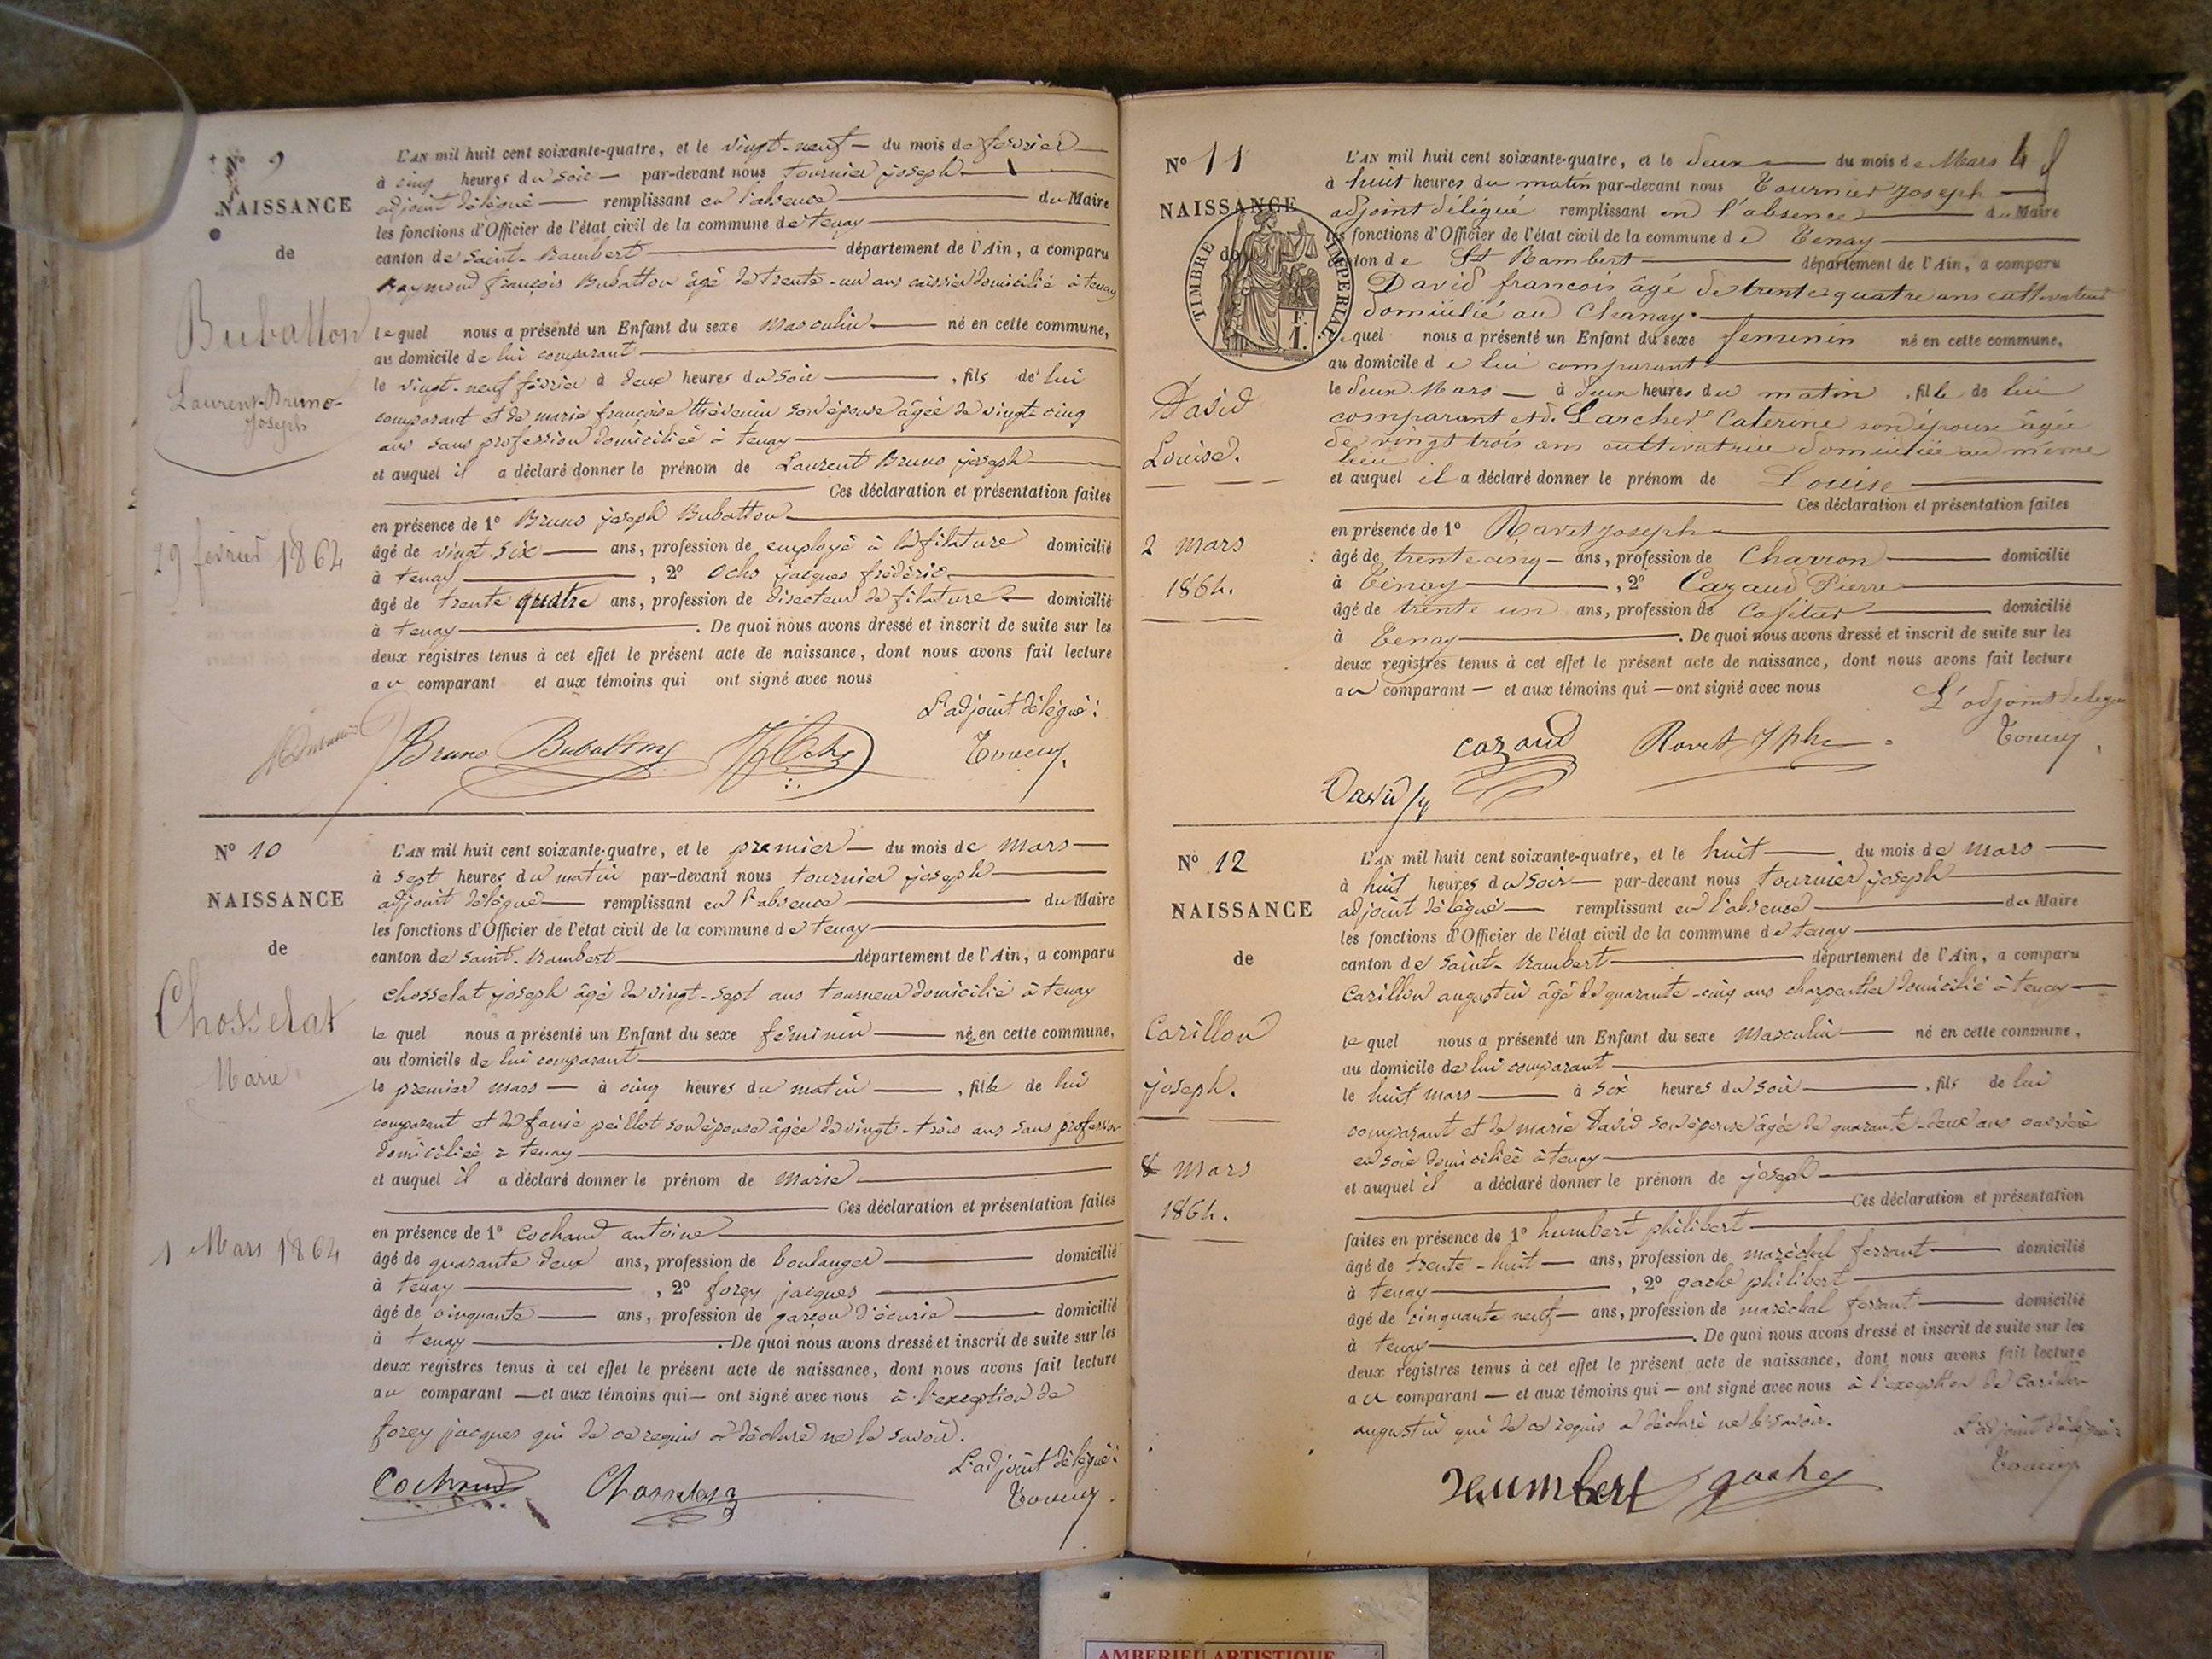 N° 9
NAISSANCE
de
Bubatton
Laurent-Bruno-
Joseph
29 février 1864
L'AN mil huit cent soixante-quatre, et le vingt-neuf du mois de février
à cinq heures du soir par-devant nous tournier joseph
adjoint délégué remplissant en l'absence du Maire
les fonctions d'Officier de l'état civil de la commune de tenay
canton de saint-Rambert département de l'Ain, a comparu
Raymond françois Bubatton âgé de trente-un ans caissier domicilié à tenay
lequel nous a présenté un Enfant du sexe Masculin né en cette commune,
au domicile de lui comparant
le vingt-neuf février à deux heures du soir, fils de lui
comparant et de marie françoise thévenin son épouse âgée de vingt cinq
ans sans profession domiciliée à tenay
et auquel il a déclaré donner le prénom de Laurent Bruno joseph
Ces déclaration et présentation faites
en présence de 1° Bruno joseph Bubatton
âgé de vingt-six ans, profession de employé à la filature domicilié
à tenay, 2° Ochs jacques frédéric
âgé de trente quatre ans, profession de directeur de filature domicilié
à tenay. De quoi nous avons dressé et inscrit de suite sur les
deux registres tenus à cet effet le présent acte de naissance, dont nous avons fait lecture
au comparant et aux témoins qui ont signé avec nous
L'adjoint délégué:
Bruno Bubatton Ochs
N° 10
NAISSANCE
de
Chosselat
Marie
1 Mars 1864
L'AN mil huit cent soixante-quatre, et le premier du mois de mars
à sept heures du matin par-devant nous tournier joseph
adjoint délégué remplissant en l'absence du Maire
les fonctions d'Officier de l'état civil de la commune de tenay
canton de saint-Rambert département de l'Ain, a comparu
chosselat joseph âgé de vingt-sept ans tourneur domicilié à tenay
lequel nous a présenté un Enfant du sexe féminin née en cette commune,
au domicile de lui comparant
le premier mars à cinq heures du matin, fille de lui
comparant et de fanie peillot son épouse âgée de vingt-trois ans sans profession
domiciliée à tenay
et auquel il a déclaré donner le prénom de Marie
Ces déclaration et présentation faites
en présence de 1° Cochaud antoine
âgé de quarante deux ans, profession de boulanger domicilié
à tenay, 2° forey jacques
âgé de cinquante ans, profession de garçon d'écurie domicilié
à tenay. De quoi nous avons dressé et inscrit de suite sur les
deux registres tenus à cet effet le présent acte de naissance, dont nous avons fait lecture
au comparant et aux témoins qui ont signé avec nous à l'exception de
forey jacques qui de ce requis a déclaré ne le savoir.
L'adjoint délégué:
Cochaud Chosselat
N° 11
NAISSANCE
de
TIMBRE IMPERIAL
F.
1.
David
Louise.
2 mars
1864.
L'AN mil huit cent soixante-quatre, et le deux du mois de Mars
à huit heures du matin par-devant nous Tournier Joseph
adjoint délégué remplissant en l'absence du Maire
les fonctions d'Officier de l'état civil de la commune de Tenay
canton de St Rambert département de l'Ain, a comparu
David francois âgé de trente quatre ans cultivateur
domicilié au Chanay.
lequel nous a présenté un Enfant du sexe feminin né en cette commune,
au domicile de lui comparant
le deux Mars à deux heures du matin, fille de lui
comparant et de Larcher Caterine son épouse âgée
de vingt trois ans cultivatrice domiciliée au même
lieu
et auquel il a déclaré donner le prénom de Louise
Ces déclaration et présentation faites
en présence de 1° Ravet Joseph
âgé de trente cinq ans, profession de Charron domicilié
à Tenay, 2° Cazaud Pierre
âgé de trente un ans, profession de domicilié
à Tenay. De quoi nous avons dressé et inscrit de suite sur les
deux registres tenus à cet effet le présent acte de naissance, dont nous avons fait lecture
au comparant et aux témoins qui ont signé avec nous
L'adjoint délégué
cazaud Ravet Jph
David
N° 12
NAISSANCE
de
Carillon
joseph.
8 mars
1864.
L'AN mil huit cent soixante-quatre, et le huit du mois de mars
à huit heures du soir par-devant nous tournier joseph
adjoint délégué remplissant en l'absence du Maire
les fonctions d'Officier de l'état civil de la commune de tenay
canton de saint-Rambert département de l'Ain, a comparu
Carillon augustin âgé de quarante-cinq ans charpentier domicilié à tenay
lequel nous a présenté un Enfant du sexe Masculin né en cette commune,
au domicile de lui comparant
le huit mars à six heures du soir, fils de lui
comparant et de marie David son épouse âgée de quarante-deux ans ouvrière
en soie domiciliée à tenay
et auquel il a déclaré donner le prénom de joseph
Ces déclaration et présentation
faites en présence de 1° humbert philibert
âgé de trente-huit ans, profession de maréchal ferrant domicilié
à tenay, 2° gache philibert
âgé de cinquante neuf ans, profession de maréchal ferrant domicilié
à tenay. De quoi nous avons dressé et inscrit de suite sur les
deux registres tenus à cet effet le présent acte de naissance, dont nous avons fait lecture
au comparant et aux témoins qui ont signé avec nous à l'exception de Carillon
augustin qui de ce requis a déclaré ne le savoir.
L'adjoint délégué:
Humbert gache
AMBERIEU ARTISTIQUE